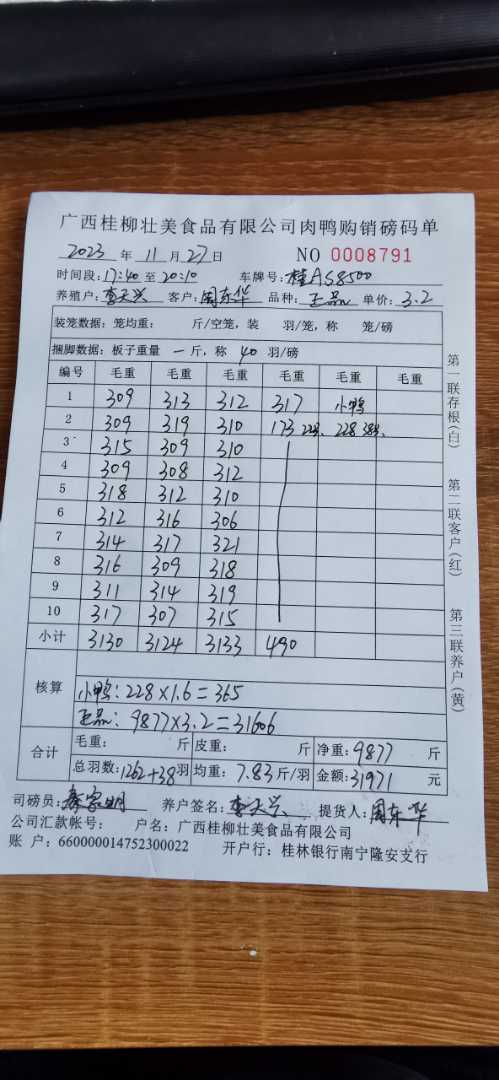 广西桂柳壮美食品有限公司肉鸭购销磅码单
2023 年 11 月 27 日 NO 0008791
时间段:17:40 至 20:10 车牌号:桂AS8500
养殖户:李天兴 客户:周东华 品种:正品 单价:3.2
装笼数据:笼均重: 斤/空笼,装 羽/笼,称 笼/磅
捆脚数据:板子重量 一 斤,称 40 羽/磅
编号 毛重 毛重 毛重 毛重 毛重 毛重
1 309 313 312 317 小鸭
2 309 319 310 173 22只. 228 38只.
3 315 309 310
4 309 308 312
5 318 312 310
6 312 316 306
7 314 317 321
8 316 309 318
9 311 314 319
10 317 307 315
小计 3130 3124 3133 490
核算
小鸭:228×1.6=365
正品:9877×3.2=31606
合计
毛重: 斤 皮重: 斤 净重:9877 斤
总羽数:1262+38羽 均重:7.83斤/羽 金额:31971 元
司磅员: 养户签名:李天兴 提货人:周东华
公司汇款帐号: 户名:广西桂柳壮美食品有限公司
账 户:660000014752300022 开户行:桂林银行南宁隆安支行
第一联存根(白)
第二联客户(红)
第三联养户(黄)